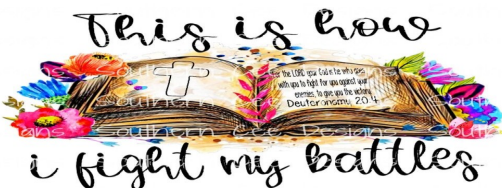 This is how
for the LORD your God is he who goes
with you to fight for you against your
enemies, to give you the victory.
Deuteronomy 20:4
Southern Cee Designs
i fight my battles